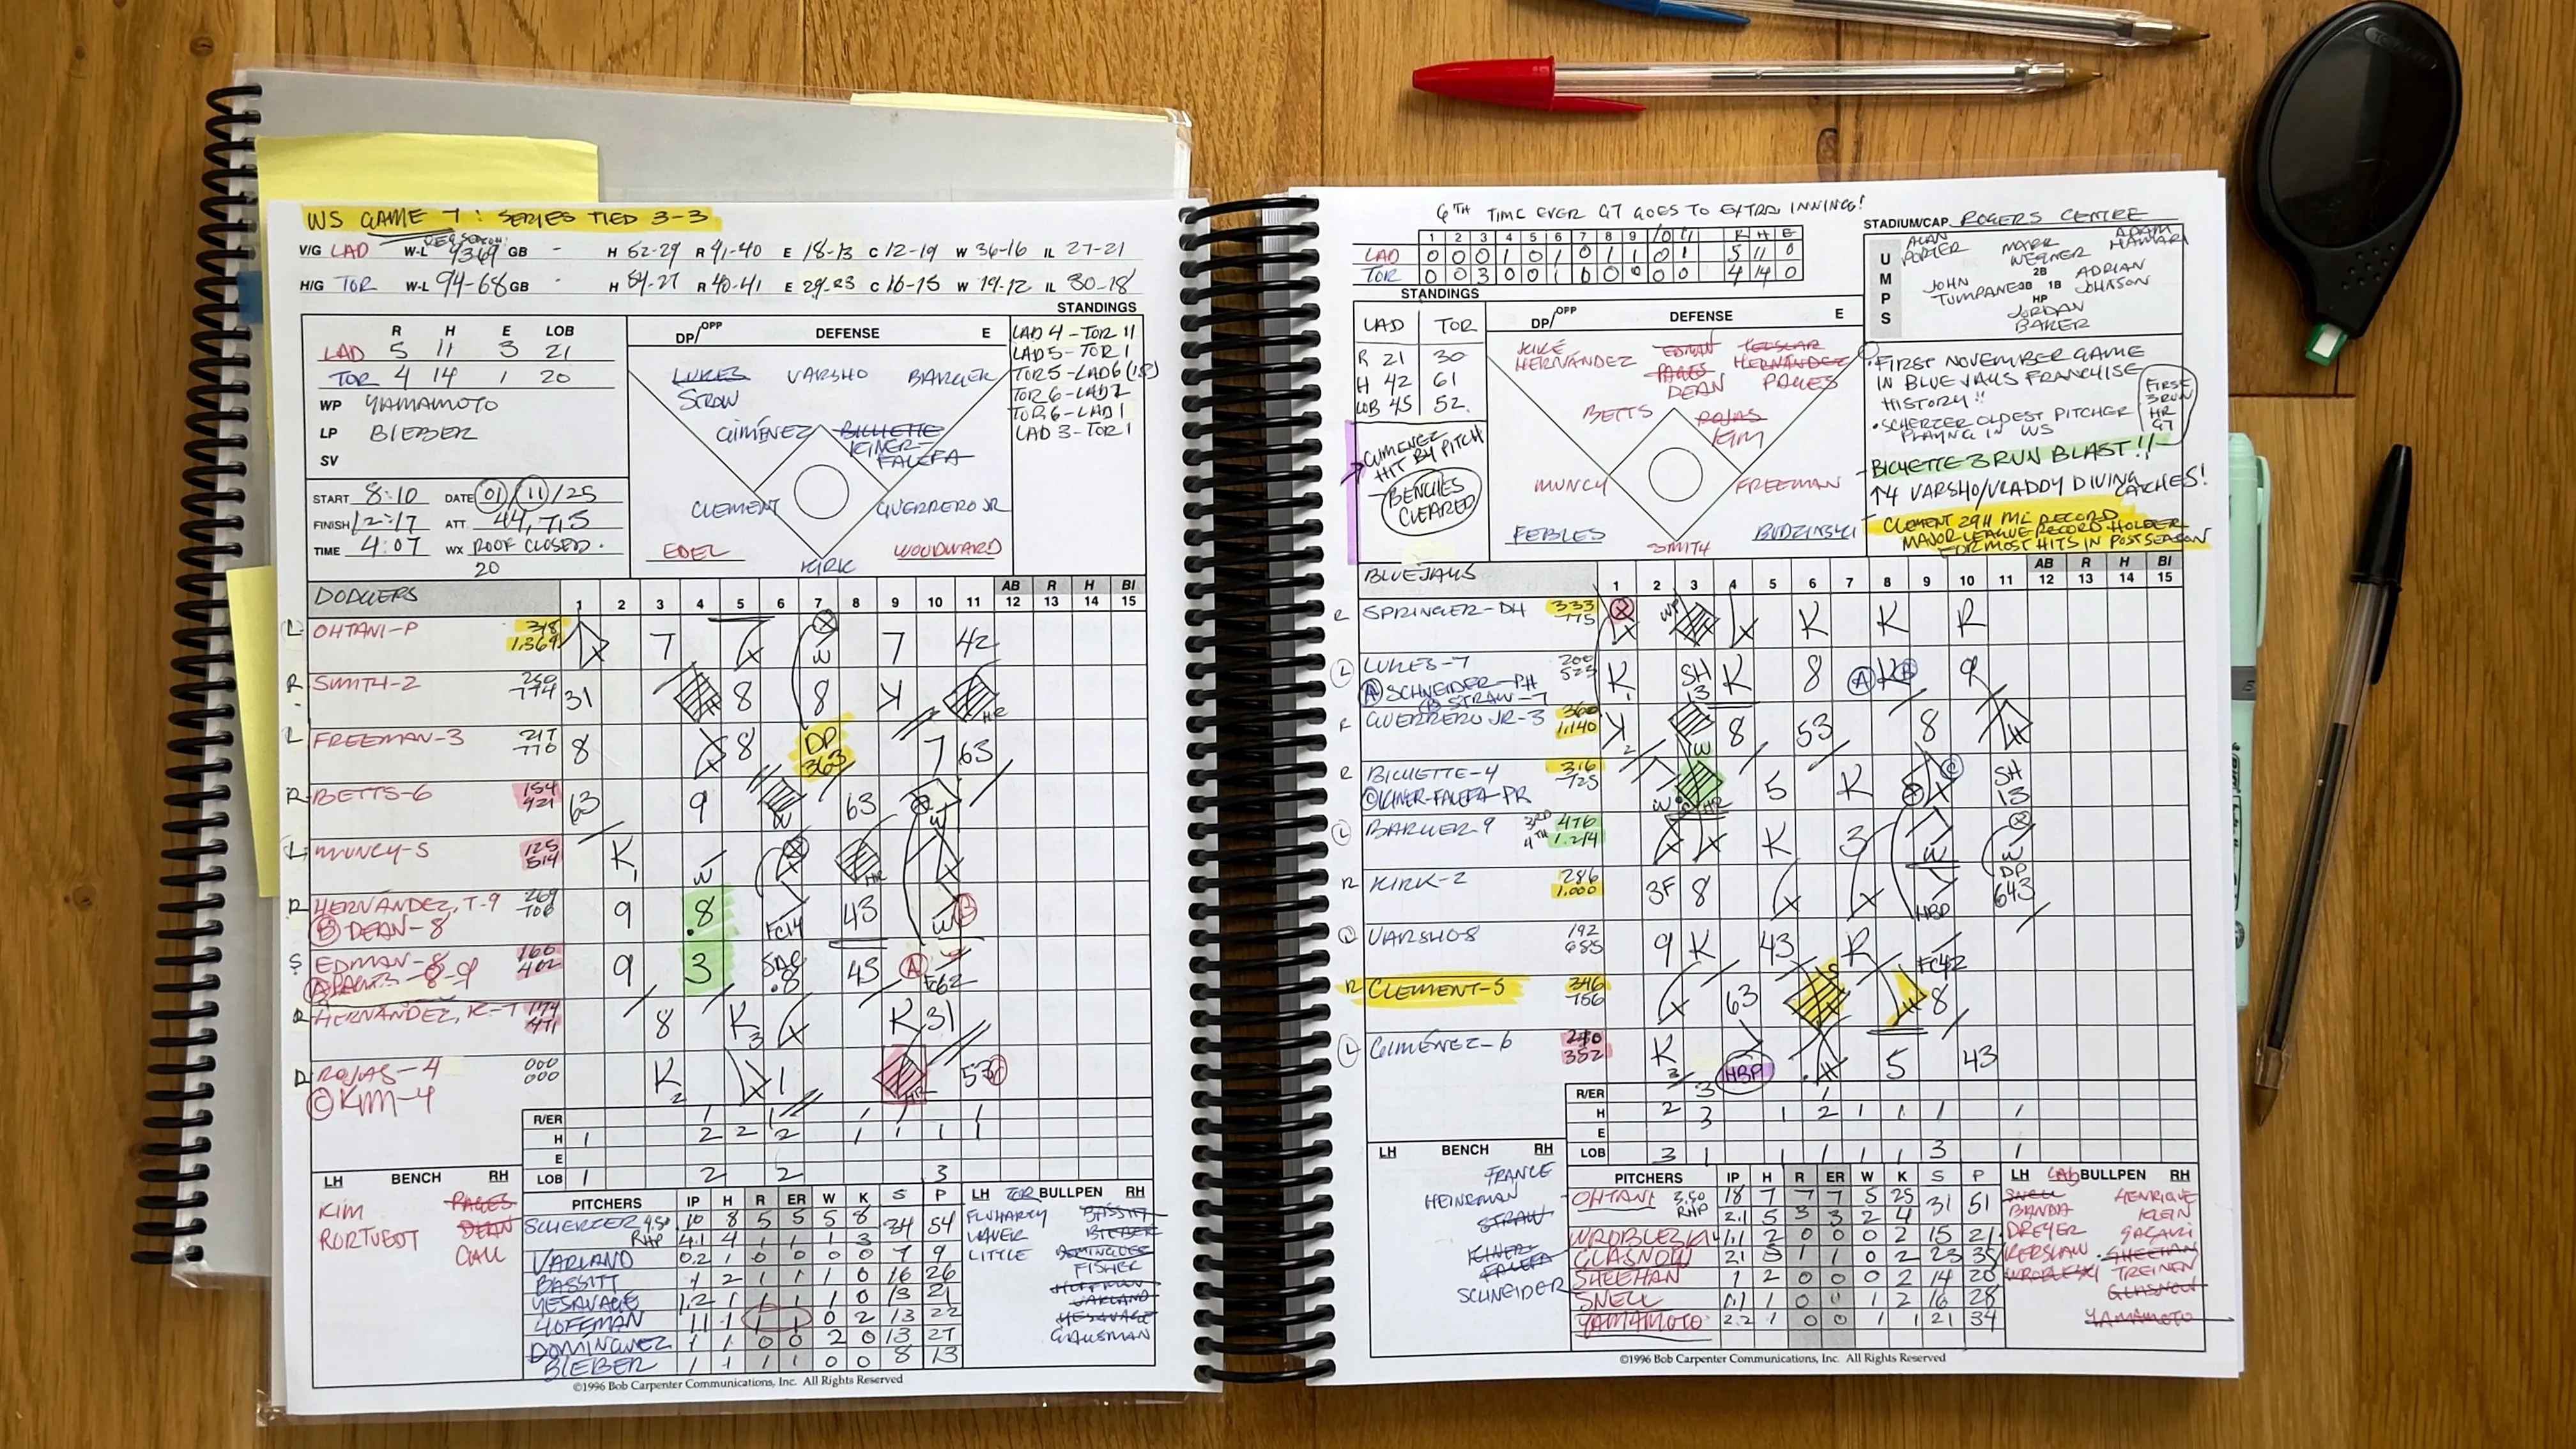 WS GAME 7: SERIES TIED 3-3
V/G LAD W-L 93-69 GB - H 52-29 R 41-40 E 18-13 C 12-19 W 36-16 IL 27-21
H/G TOR W-L 94-68 GB - H 54-27 R 40-41 E 29-23 C 16-15 W 19-12 IL 30-18
STANDINGS
R H E LOB
LAD 5 11 3 21
TOR 4 14 1 20
WP YAMAMOTO
LP BIEBER
SV
START 8:10 DATE 01/11/25
FINISH 12:17 ATT. 44,713
TIME 4:07 WX ROOF CLOSED.
20
DP/OPP DEFENSE E
LUKES VARSHO BARGER
STRAW
GIMÉNEZ BICHETTE
KINER-
FALEFA
CLEMENT GUERRERO JR
EBEL WOODWARD
KIRK
LAD 4 - TOR 11
LAD 5 - TOR 1
TOR 5 - LAD 6 (18)
TOR 6 - LAD 2
TOR 6 - LAD 1
LAD 3 - TOR 1
DODGERS 1 2 3 4 5 6 7 8 9 10 11 AB 12 R 13 H 14 BI 15
L OHTANI-P 318 1.369 7 W 7 42
R SMITH-2 260 774 31 8 8 K HR
L FREEMAN-3 217 770 8 8 DP 363 7 63
R BETTS-6 154 421 63 9 W 63 W
L MUNCY-5 125 514 K W HR
R HERNÁNDEZ, T-9 269 706 9 8 FC14 43 W B
B DEAN-8
S EDMAN-8 160 402 9 3 SAC 8 43 A FC62
A PAGES-8-9
R HERNÁNDEZ, K-7 174 471 8 K K 31
R ROJAS-4 000 000 K 1 HR 53 C
C KIM-4
R/ER 1 1 1 1 1
H 1 2 2 2 1 1 1 1
E
LOB 1 2 2 3
LH BENCH RH
KIM PAGES
RORTVEDT DEAN
CALL
PITCHERS IP H R ER W K S P
SCHERZER 4.50 10 8 5 5 5 8 34 54
RHP 4.1 4 1 1 1 3
VARLAND 0.2 1 0 0 0 0 7 9
BASSITT 1 2 1 1 1 0 16 26
YESAVAGE 1.2 1 1 1 1 0 13 21
HOFFMAN 1.1 1 1 1 0 2 13 22
DOMÍNGUEZ 1 1 0 0 2 0 13 27
BIEBER 1 1 1 1 0 0 8 13
LH TOR BULLPEN RH
FLUHARTY BASSITT
LAUER BIEBER
LITTLE DOMINGUEZ
FISHER
HOFFMAN
VARLAND
YESAVAGE
GAUSMAN
©1996 Bob Carpenter Communications, Inc. All Rights Reserved
6TH TIME EVER G7 GOES TO EXTRA INNINGS!
1 2 3 4 5 6 7 8 9 10 11 R H E
LAD 0 0 0 1 0 1 0 1 1 0 1 5 11 0
TOR 0 0 3 0 0 1 0 0 0 0 0 4 14 0
STADIUM/CAP. ROGERS CENTRE
UMPS
ALAN PORTER MARK WEGNER ADAM HAMARI
2B
JOHN TUMPANE 3B 1B ADRIAN JOHNSON
HP
JORDAN BAKER
STANDINGS
LAD TOR
R 21 30
H 42 61
LOB 45 52.
GIMENEZ
HIT BY PITCH
BENCHES
CLEARED
DP/OPP DEFENSE E
KIKÉ HERNÁNDEZ EDMAN TEOSCAR HERNÁNDEZ
PAGES
DEAN PAGES
BETTS ROJAS
KIM
MUNCY FREEMAN
FEBLES BUDZINSKI
SMITH
• FIRST NOVEMBER GAME
IN BLUE JAYS FRANCHISE
HISTORY!!
• SCHERZER OLDEST PITCHER
PLAYING IN WS
FIRST
3 RUN
HR
G7
- BICHETTE 3 RUN BLAST!!
↑4 VARSHO/VLADDY DIVING
CATCHES!
CLEMENT 29H ML RECORD
MAJOR LEAGUE RECORD HOLDER
FOR MOST HITS IN POSTSEASON
BLUEJAYS 1 2 3 4 5 6 7 8 9 10 11 AB 12 R 13 H 14 BI 15
R SPRINGER-DH 333 775 WP K K R
L LUKES-7 200 523 K SH 13 K 8 A K B 9
A SCHNEIDER-PH
B STRAW-7
R GUERRERO JR-3 360 1,140 K W 8 53 8
R BICHETTE-4 316 725 W HR 5 K C SH 13
C KINER-FALEFA-PR
L BARGER-9 476 1.214 K 3 W W
R KIRK-2 286 1.000 3F 8 HBP DP 643
L VARSHO-8 192 655 9 K 43 R FC42
R CLEMENT-5 346 756 63 8
L GIMÉNEZ-6 240 352 K HBP 5 43
R/ER 3 1
H 2 3 1 2 1 1 1 1
E
LOB 3 1 1 1 1 1 3 1
LH BENCH RH
FRANCE
HEINEMAN
STRAW
KINER-
FALEFA
SCHNEIDER
PITCHERS IP H R ER W K S P
OHTANI 2.50 18 7 7 7 5 25 31 51
RHP 2.1 5 3 3 2 4
WROBLESKI 1.1 2 0 0 0 2 15 21
GLASNOW 2.1 3 1 1 0 2 23 35
SHEEHAN 1 2 0 0 0 2 14 20
SNELL 1.1 1 0 0 1 2 16 28
YAMAMOTO 2.2 1 0 0 1 1 21 34
LH LAD BULLPEN RH
SNELL HENRIQUE
BANDA KLEIN
DREYER SASAKI
KERSHAW SHEEHAN
WROBLESKI TREINEN
GLASNOW
YAMAMOTO
©1996 Bob Carpenter Communications, Inc. All Rights Reserved